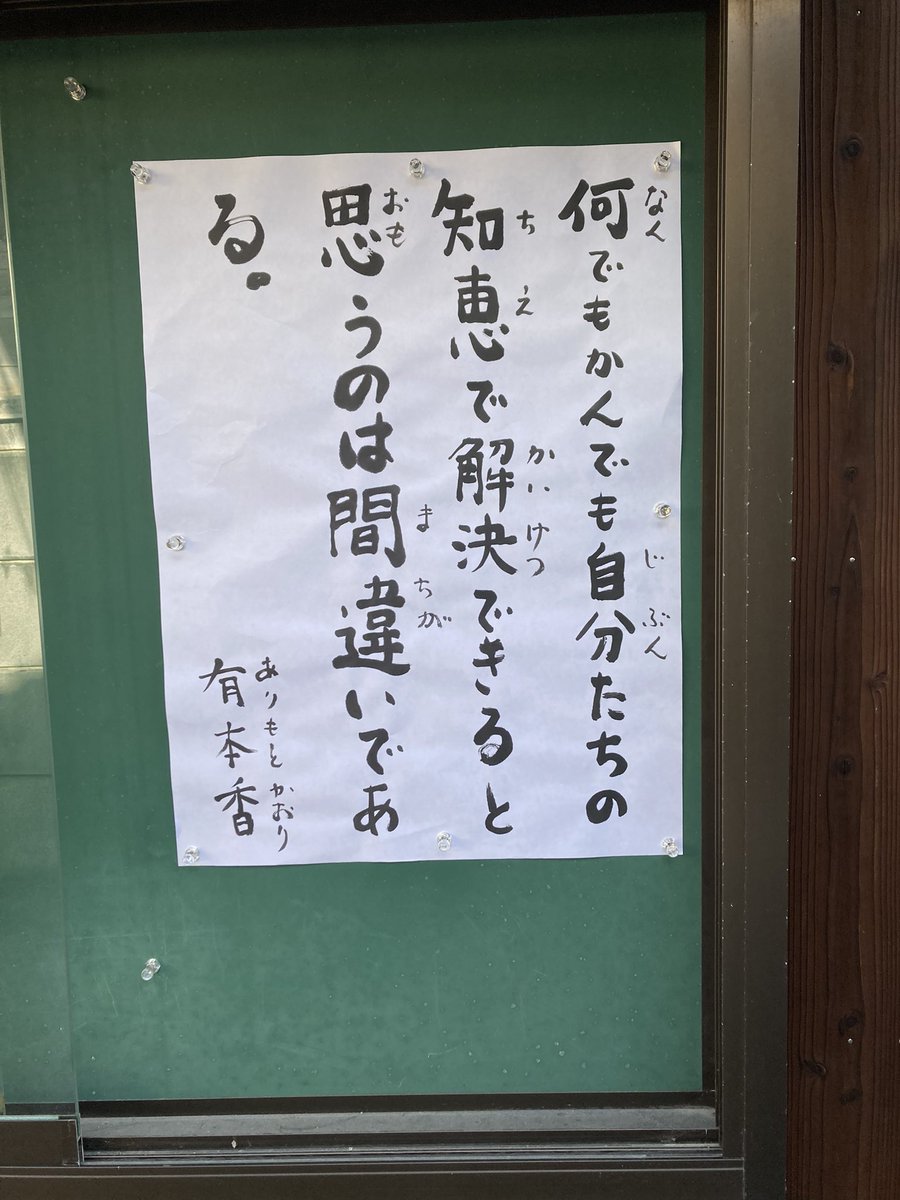 何でもかんでも自分たちの
なん じぶん
知恵で解決できると
ちえ かいけつ
思うのは間違いであ
おも まちが
る.
有本香
ありもとかおり